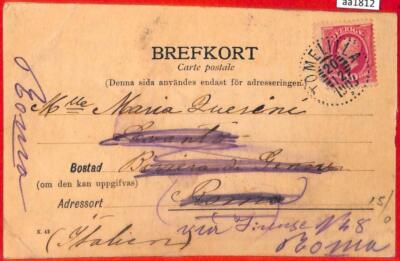 aa1812
BREFKORT
Carte postale
(Denna sida användes endast för adresseringen.)
SVERIGE
TOMELILLA
Roma
Mlle Maria Querini
Bostad
(om den kan uppgifvas)
Adressort Roma
15/
K. 43
(Italien)
via Firenze N 48
Roma